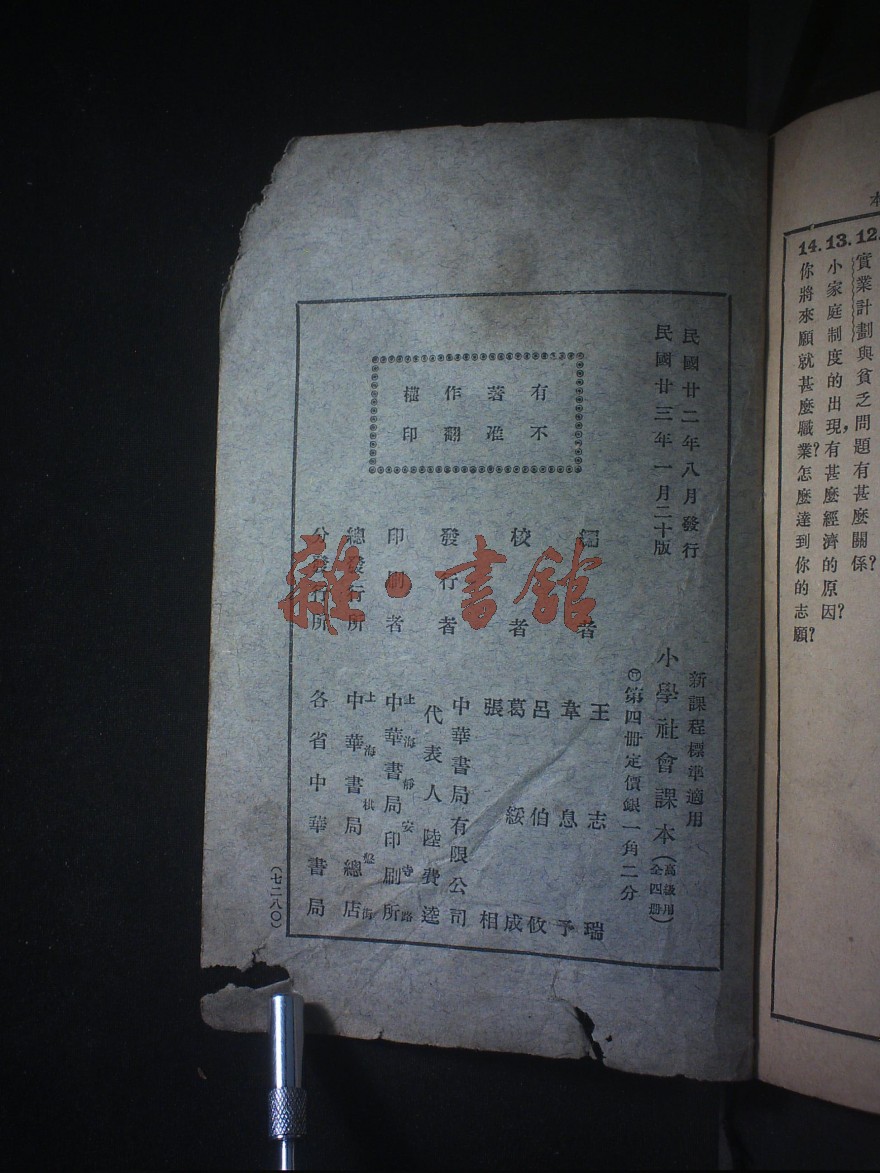 14. 13. 12.
實業計劃與貧乏問題有甚麼關係?
小家庭制度的出現,有甚麼經濟的原因?
你將來願就甚麼職業?怎麼達到你的志願?
民國廿二年八月發行
民國廿三年一月二十版
新課程標準適用
小學社會課本(高級用全四冊)
第四冊定價銀一角二分
有著作權
不准翻印
編者
王志瑞
韋息予
呂伯攸
校者
葛綏成
張相
發行者
中華書局有限公司
代表人陸費逵
印刷者
上海靜安寺路
中華書局印刷所
總發行所
上海棋盤街
中華書局總店
分發行所
各省中華書局
(七二八〇)
雜·書館